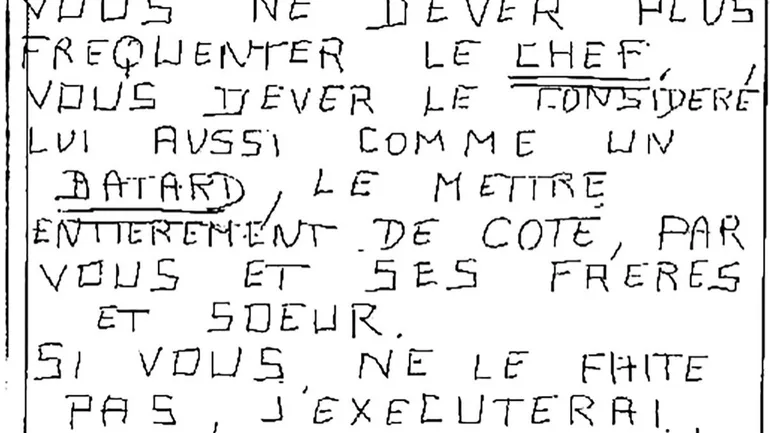 VOUS NE DEVER PLUS
FREQUENTER LE CHEF,
VOUS DEVER LE CONSIDERÉ
LUI AUSSI COMME UN
BATARD, LE METTRE
ENTIEREMENT DE COTE, PAR
VOUS ET SES FRERES
ET SOEUR.
SI VOUS NE LE FAITE
PAS, J'EXECUTERAI